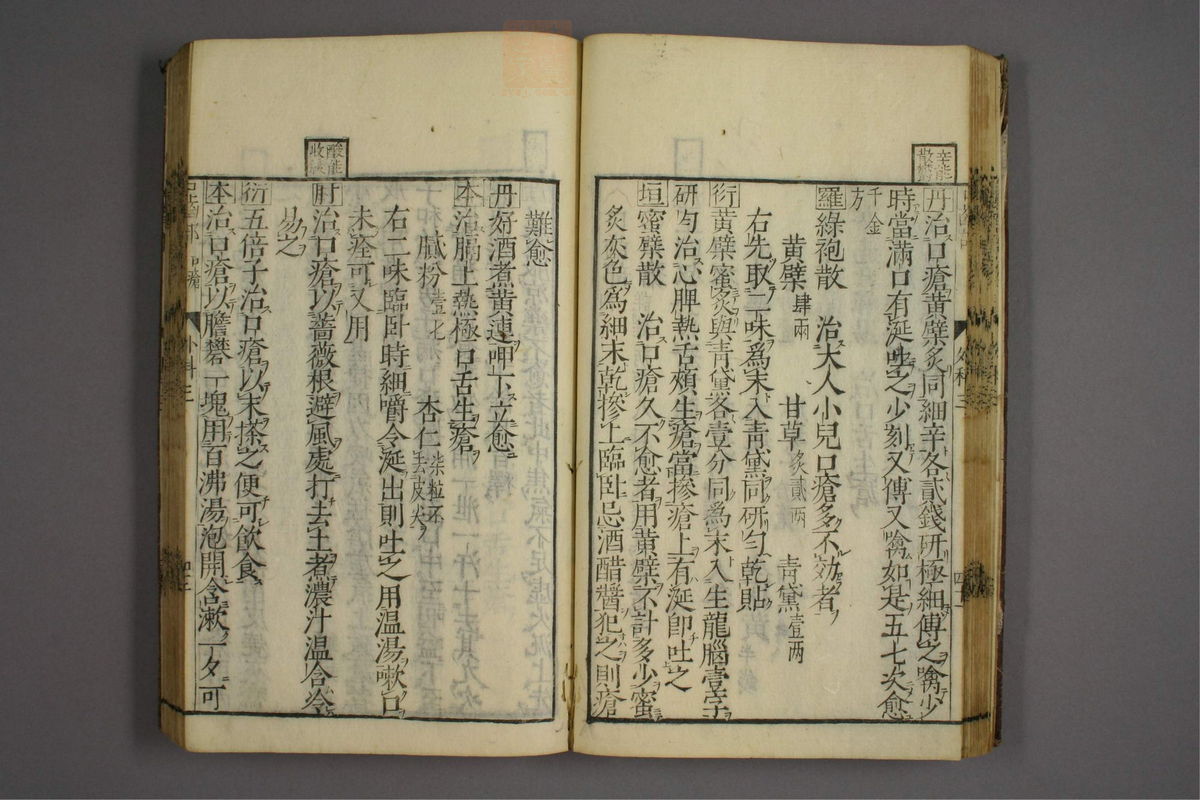 辛能
散
丹治口瘡黄蘗炙同細辛各貳錢研極細傅之噙少
時當滿口有涎吐之少刻又傅又噙如是五七次愈
千金
方
羅綠袍散 治大人小兒口瘡多不効者
黄蘗肆兩 甘草炙貳兩 青黛壹兩
右先取二味為末入青黛同研勻乾貼
衍黄蘗蜜炙與青黛各壹分同為末入生龍腦壹字
研勻治心脾熱舌頰生瘡當摻瘡上有涎卽吐之
垣蜜蘗散 治口瘡久不愈者用黄蘗不計多少蜜
炙灰色為細末乾摻上臨卧忌酒醋醬犯之則瘡
難愈
丹好酒煮黄連呷下立愈
本治膈上熱極口舌生瘡
膩粉壹匕 杏仁柒粒不去皮尖
右二味臨卧時細嚼令涎出則吐之用温湯嗽口
未痊可又用
酸能
收
肘治口瘡以薔薇根避風處打去土煮濃汁温含冷
易之
衍五倍子治口瘡以末搽之便可飲食
本治口瘡以膽礬一塊用百沸湯泡開含漱一夕可